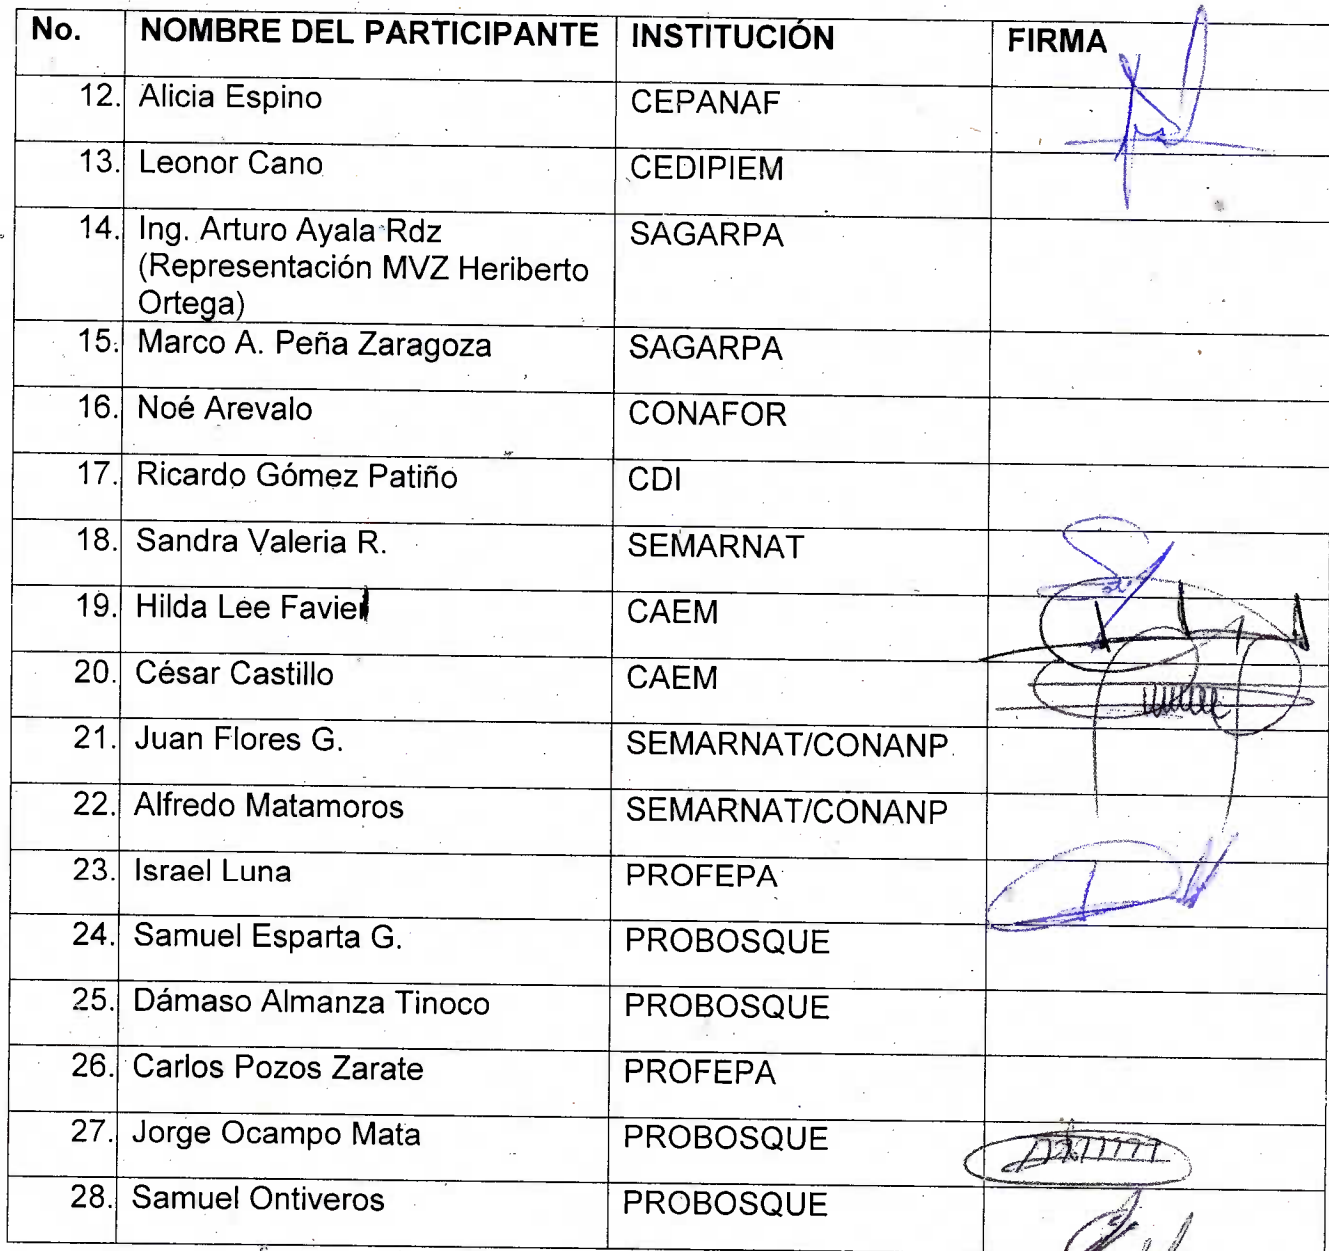 No. NOMBRE DEL PARTICIPANTE INSTITUCIÓN FIRMA
12. Alicia Espino CEPANAF
13. Leonor Cano CEDIPIEM
14. Ing. Arturo Ayala Rdz SAGARPA
(Representación MVZ Heriberto
Ortega)
15. Marco A. Peña Zaragoza SAGARPA
16. Noé Arevalo CONAFOR
17. Ricardo Gómez Patiño CDI
18. Sandra Valeria R. SEMARNAT
19. Hilda Lee Favier CAEM
20. César Castillo CAEM
21. Juan Flores G. SEMARNAT/CONANP
22. Alfredo Matamoros SEMARNAT/CONANP
23. Israel Luna PROFEPA
24. Samuel Esparta G. PROBOSQUE
25. Dámaso Almanza Tinoco PROBOSQUE
26. Carlos Pozos Zarate PROFEPA
27. Jorge Ocampo Mata PROBOSQUE
28. Samuel Ontiveros PROBOSQUE